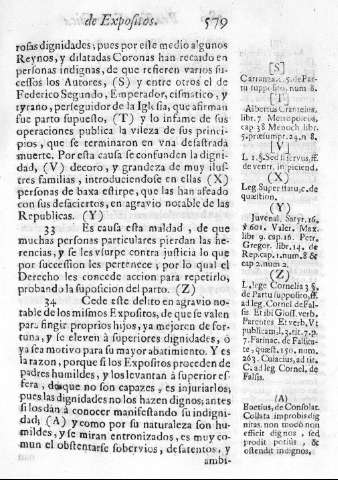 de Expositos. 579
rosas dignidades; pues por este medio algunos
Reynos, y dilatadas Coronas han recaído en
personas indignas, de que refieren varios su-
cessos los Autores, (S) y entre otros el de
Federico Segundo, Emperador, cismatico, y
tyrano, perseguidor de la Iglesia, que afirman
fue parto supuesto, (T) y lo infame de sus
operaciones publica la vileza de sus princi-
pios, que se terminaron en vna desastrada
muerte. Por esta causa se confunden la digni-
dad, (V) decoro, y grandeza de muy ilus-
tres familias, introduciendose en ellas (X)
personas de baxa estirpe, que las han afeado
con sus desaciertos, en agravio notable de las
Republicas. (Y)
33 Es causa esta maldad, de que
muchas personas particulares pierdan las he-
rencias, y se les vsurpe contra justicia lo que
por succession les pertenece; por lo qual el
Derecho les concede accion para repetirlo,
probando la suposicion del parto. (Z)
34 Cede este delito en agravio no-
table de los mismos Expositos, de que se valen
para fingir proprios hijos, ya mejoren de for-
tuna, y se eleven à superiores dignidades, ò
ya sea motivo para su mayor abatimiento. Y es
la razon; porque si los Expositos proceden de
padres humildes, y los levantan à superior es-
fera, de que no son capazes, es injuriarlos;
pues las dignidades no los hazen dignos; antes
si los dàn à conocer manifestando su indigni-
dad; (A) y como por su naturaleza son hu-
mildes, y se miran entronizados, es muy co-
mun el obstentarse sobervios, desatentos, y
ambi-
[S]
Carranza c. 5. de Par-
tu supposito, num 8.
(T)
Albertus Crantzius,
libr. 7 Metropoleos,
cap 38 Menoch. libr.
5. præsumpt. 24 n 8.
(V)
L. 1. §. Sed si servus, ff.
de ventr. in piciend.
(X)
Leg Super statu, c. de
quæstion.
(Y)
Juvenal. Satyr. 16.
y 601. Valer. Max.
libr 9. cap. 16. Petr.
Gregor. libr. 14. de
Rep. cap. 1. num. 8 &
cap 2. num 2.
(Z)
L. lege Cornelia 3 §.
de Partu supposito, ff.
ad leg. Cornel de Fal-
sis Et ibi Giosf. verb.
Parentes Et verb. Vt
publicam; l. 3. tit. 7. p.
7. Farinac. de Falsita-
te, quæst. 150, num.
263. Cuiacius, ad tit.
C. ad leg. Cornel. de
Falsis.
(A)
Boetius, de Consolat.
Collata improbis dig-
nitas, non modò non
efficit dignos, sed
prodit potius, &
ostendit indignos.